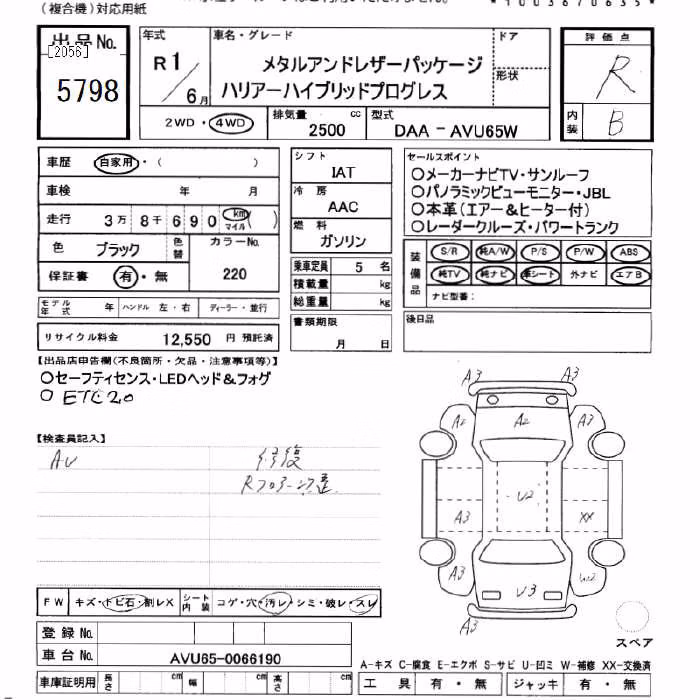 (複合機)対応用紙
*1003670635*
出品No.
[2056]
5798
年式
R1/6月
車名・グレード
メタルアンドレザーパッケージ
ハリアーハイブリッドプログレス
ドア
形状
評価点
R
内装
B
2WD・4WD
排気量
2500 cc
型式
DAA - AVU65W
車歴 自家用・( )
車検 年 月
走行 3万 8千 6 9 0 km マイル ( )
色 ブラック 色替
カラーNo.
220
保証書 有・無
モデル年式 年 ハンドル 左・右 ディーラー・並行
リサイクル料金 12,550 円 預託済
シフト
IAT
冷房
AAC
燃料
ガソリン
乗車定員 5 名
積載量 kg
総重量 kg
書類期限
月 日
セールスポイント
○メーカーナビTV・サンルーフ
○パノラミックビューモニター・JBL
○本革(エアー&ヒーター付)
○レーダークルーズ・パワートランク
装備品
S/R 純A/W P/S P/W ABS
純TV 純ナビ 革シート 外ナビ エアB
ナビ型番:
後日品
【出品店申告欄(不良箇所・欠品・注意事項等)】
○セーフティセンス・LEDヘッド&フォグ
○ ETC2.0
【検査員記入】
AU 修復
A3 A3
A2 A2 A3
U2
A3 XX
A3 U3 W2
A3
スペア
FW キズ・トビ石・割レX シート内装 コゲ・穴・汚レ・シミ・破レ・スレ
登録No.
車台No. AVU65-0066190
車庫証明用 長さ cm 幅 cm 高さ cm
A-キズ C-腐食 E-エクボ S-サビ U-凹ミ W-補修 XX-交換済
工具 有・無 ジャッキ 有・無